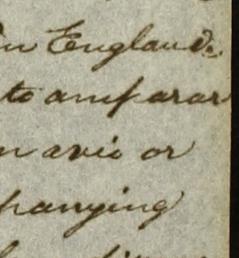 in England.
to amparar
n avio or
panying